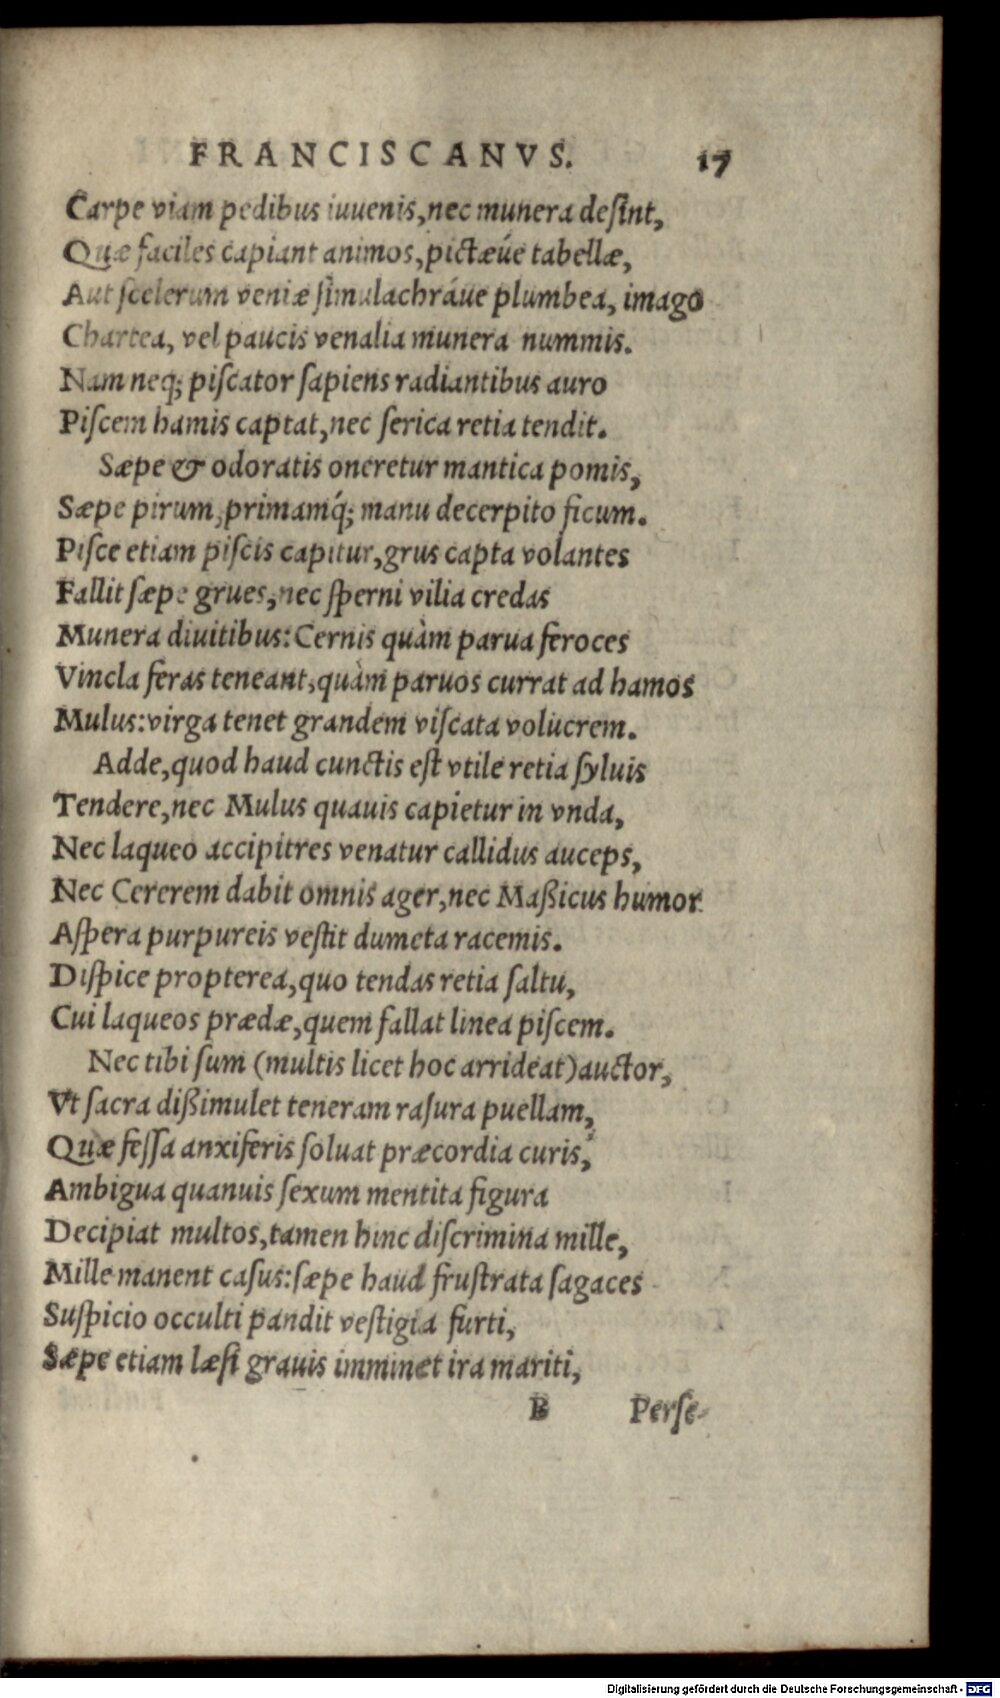 FRANCISCANVS. 17
Carpe viam pedibus iuuenis, nec munera deſint,
Quæ faciles capiant animos, pictæúe tabellæ,
Aut ſcelerum veniæ ſimulachráue plumbea, imago
Chartea, vel paucis venalia munera nummis.
Nam neq; piſcator ſapiens radiantibus auro
Piſcem hamis captat, nec ſerica retia tendit.
Sæpe & odoratis oneretur mantica pomis,
Sæpe pirum, primamq́; manu decerpito ficum.
Piſce etiam piſcis capitur, grus capta volantes
Fallit ſæpe grues, nec ſperni vilia credas
Munera diuitibus: Cernis quàm parua feroces
Vincla feras teneant, quàm paruos currat ad hamos
Mulus: virga tenet grandem viſcata volucrem.
Adde, quod haud cunctis eſt vtile retia ſyluis
Tendere, nec Mulus quauis capietur in vnda,
Nec laqueo accipitres venatur callidus auceps,
Nec Cererem dabit omnis ager, nec Maßicus humor
Aſpera purpureis veſtit dumeta racemis.
Diſpice propterea, quo tendas retia ſaltu,
Cui laqueos prædæ, quem fallat linea piſcem.
Nec tibi ſum (multis licet hoc arrideat) auctor,
Vt ſacra dißimulet teneram raſura puellam,
Quæ feſſa anxiferis ſoluat præcordia curis,
Ambigua quanuis ſexum mentita figura
Decipiat multos, tamen hinc diſcrimina mille,
Mille manent caſus: ſæpe haud fruſtrata ſagaces
Suſpicio occulti pandit veſtigia furti,
Sæpe etiam læſi grauis imminet ira mariti,
B Perſe-
Digitalisierung gefördert durch die Deutsche Forschungsgemeinschaft - DFG